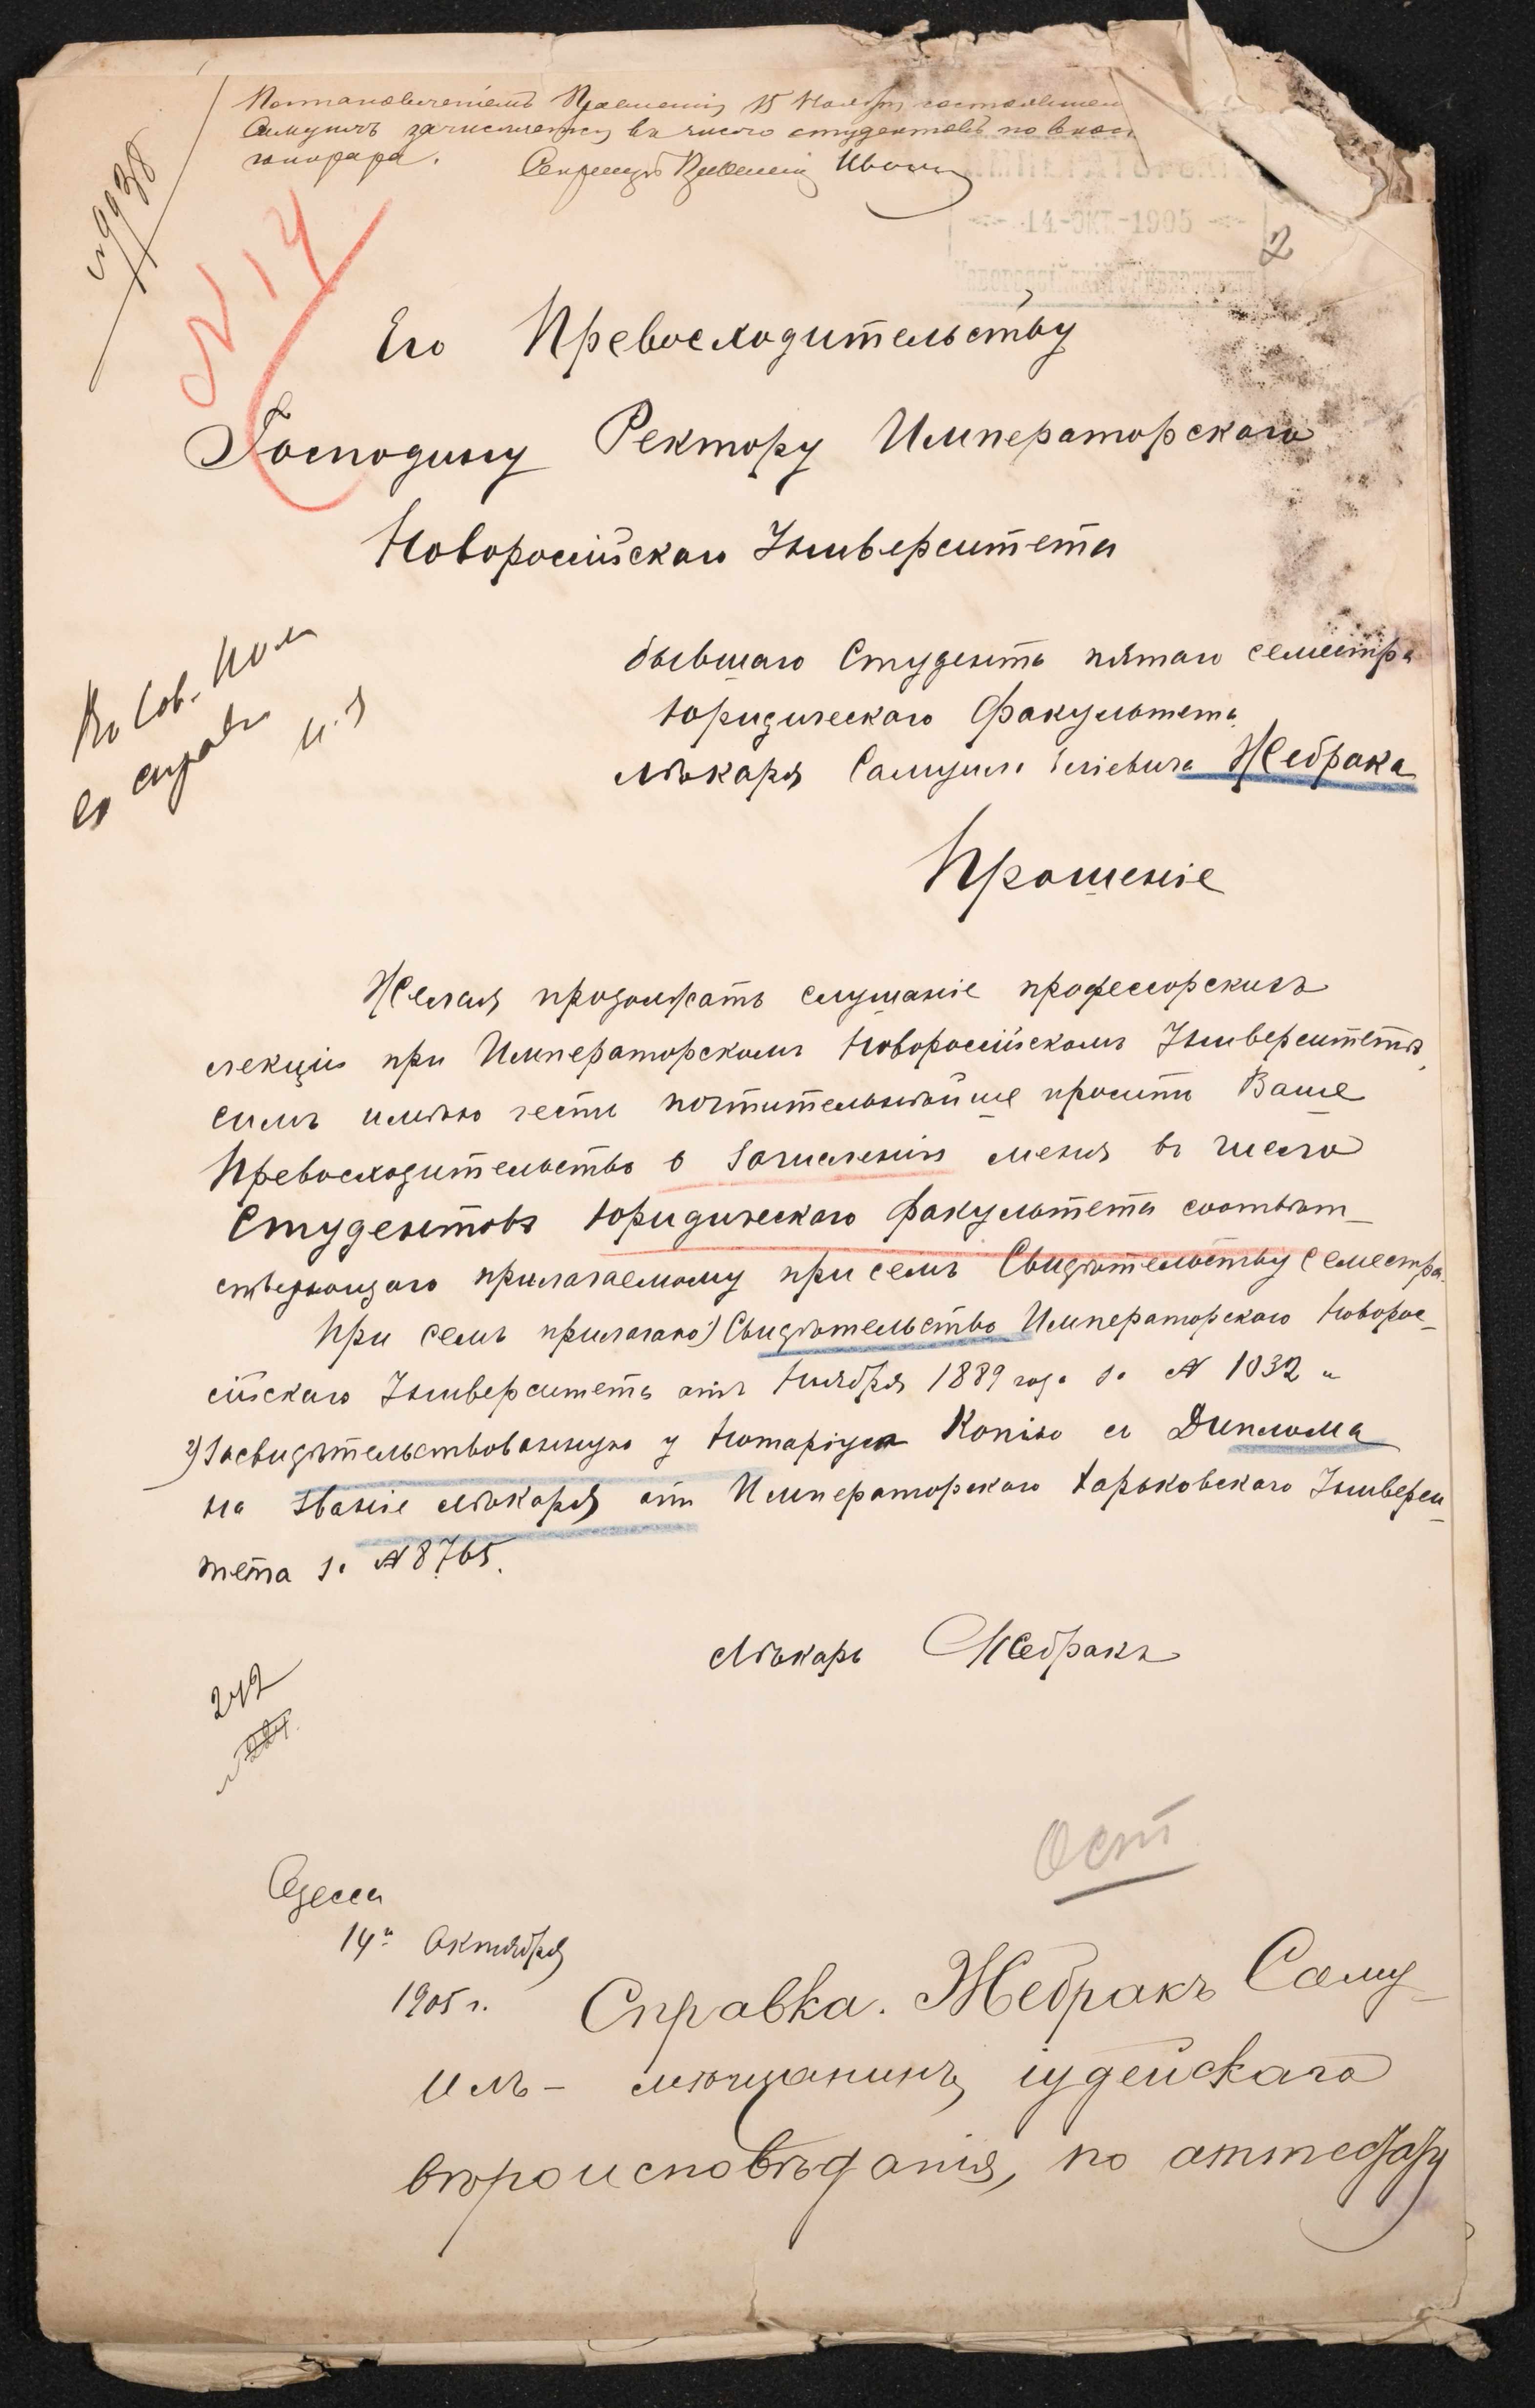 Постановленіемъ Правленія 15 Ноября состоявшем
Самуилъ зачисляется въ число студентовъ по внес
гонорара. Секретарь Правленія
14-ОКТ-1905
Новороссійскій Университетъ
2
№ 14
Его Превосходительству
Господину Ректору Императорскаго
Новоросійскаго Университета
бывшаго Студента пятаго семестра
Юридическаго Факультета
лѣкаря Самуила Жебрака
Во Сов.
со справк
Прошеніе
Желая продолжать слушаніе профессорскихъ
лекцій при Императорскомъ Новоросійскомъ Университетѣ,
симъ имѣю честь почтительнѣйше просить Ваше
Превосходительство о зачисленіи меня въ число
Студентовъ Юридическаго Факультета соотвѣт-
ствующаго прилагаемому при семъ Свидѣтельству Семестра.
При семъ прилагаю 1) Свидѣтельство Императорскаго Новорос-
сійскаго Университета отъ Ноября 1889 года за № 1032 и
2) Засвидѣтельствованную у Нотаріуса Копію съ Диплома
на званіе лѣкаря отъ Императорскаго Харьковскаго Универси-
тета за № 8765.
Лѣкарь Жебракъ
242
Ост
Одесса
14го Октября
1905 г.
Справка. Жебракъ Саму-
илъ - мѣщанинъ, іудейскаго
вѣроисповѣданія, по аттестату